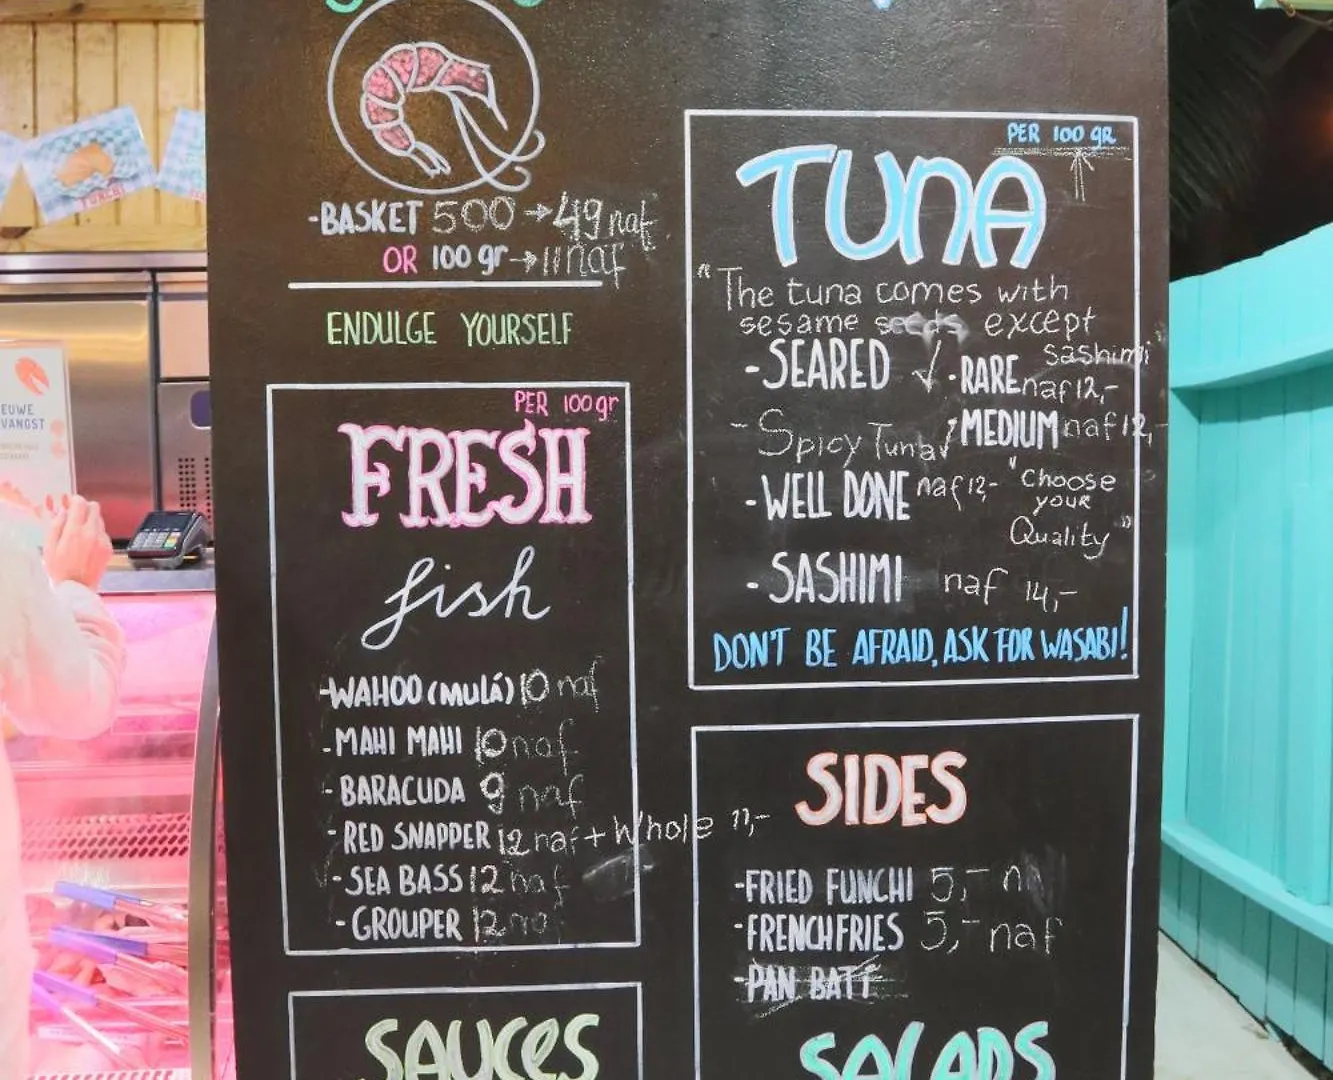 -BASKET 500 → 49 naf
OR 100 gr → 11 naf
ENDULGE YOURSELF
PER 100gr
FRESH
fish
-WAHOO (MULÁ) 10 naf
-MAHI MAHI 10 naf
-BARACUDA 9 naf
-RED SNAPPER 12 naf + Whole 11,-
-SEA BASS 12 naf
-GROUPER 12 naf
SAUCES
PER 100 gR
TUNA
"The tuna comes with
sesame seeds except
sashimi"
-SEARED ✓ -RARE naf 12,-
- Spicy Tuna ✓ MEDIUM naf 12,-
-WELL DONE naf 12,- "Choose
your
Quality"
-SASHIMI naf 14,-
DON'T BE AFRAID, ASK FOR WASABI!
SIDES
-FRIED FUNCHI 5,- n
-FRENCHFRIES 5,- naf
-PAN BATI
SALADS
EUWE
VANGST